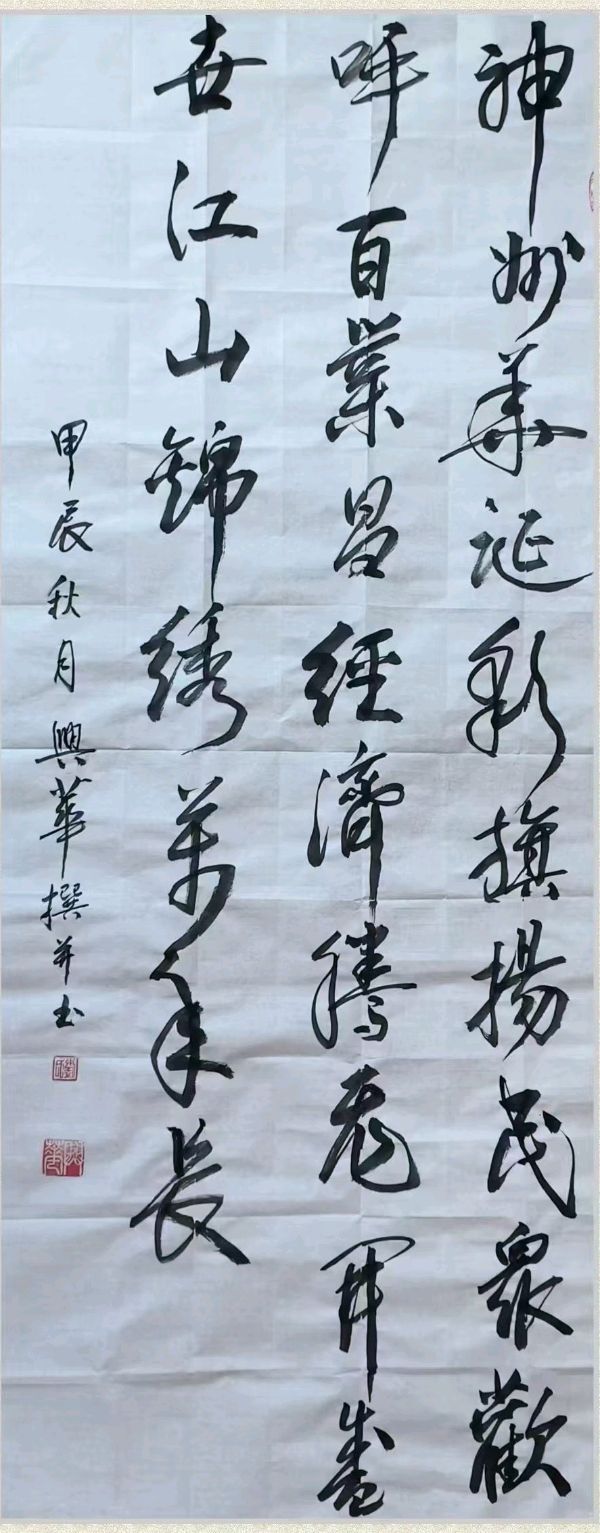 神州華誕彩旗揚民衆歡
呼百業昌經濟騰飛開盛
世江山錦绣萬年長
甲辰秋月興華撰并书
興華